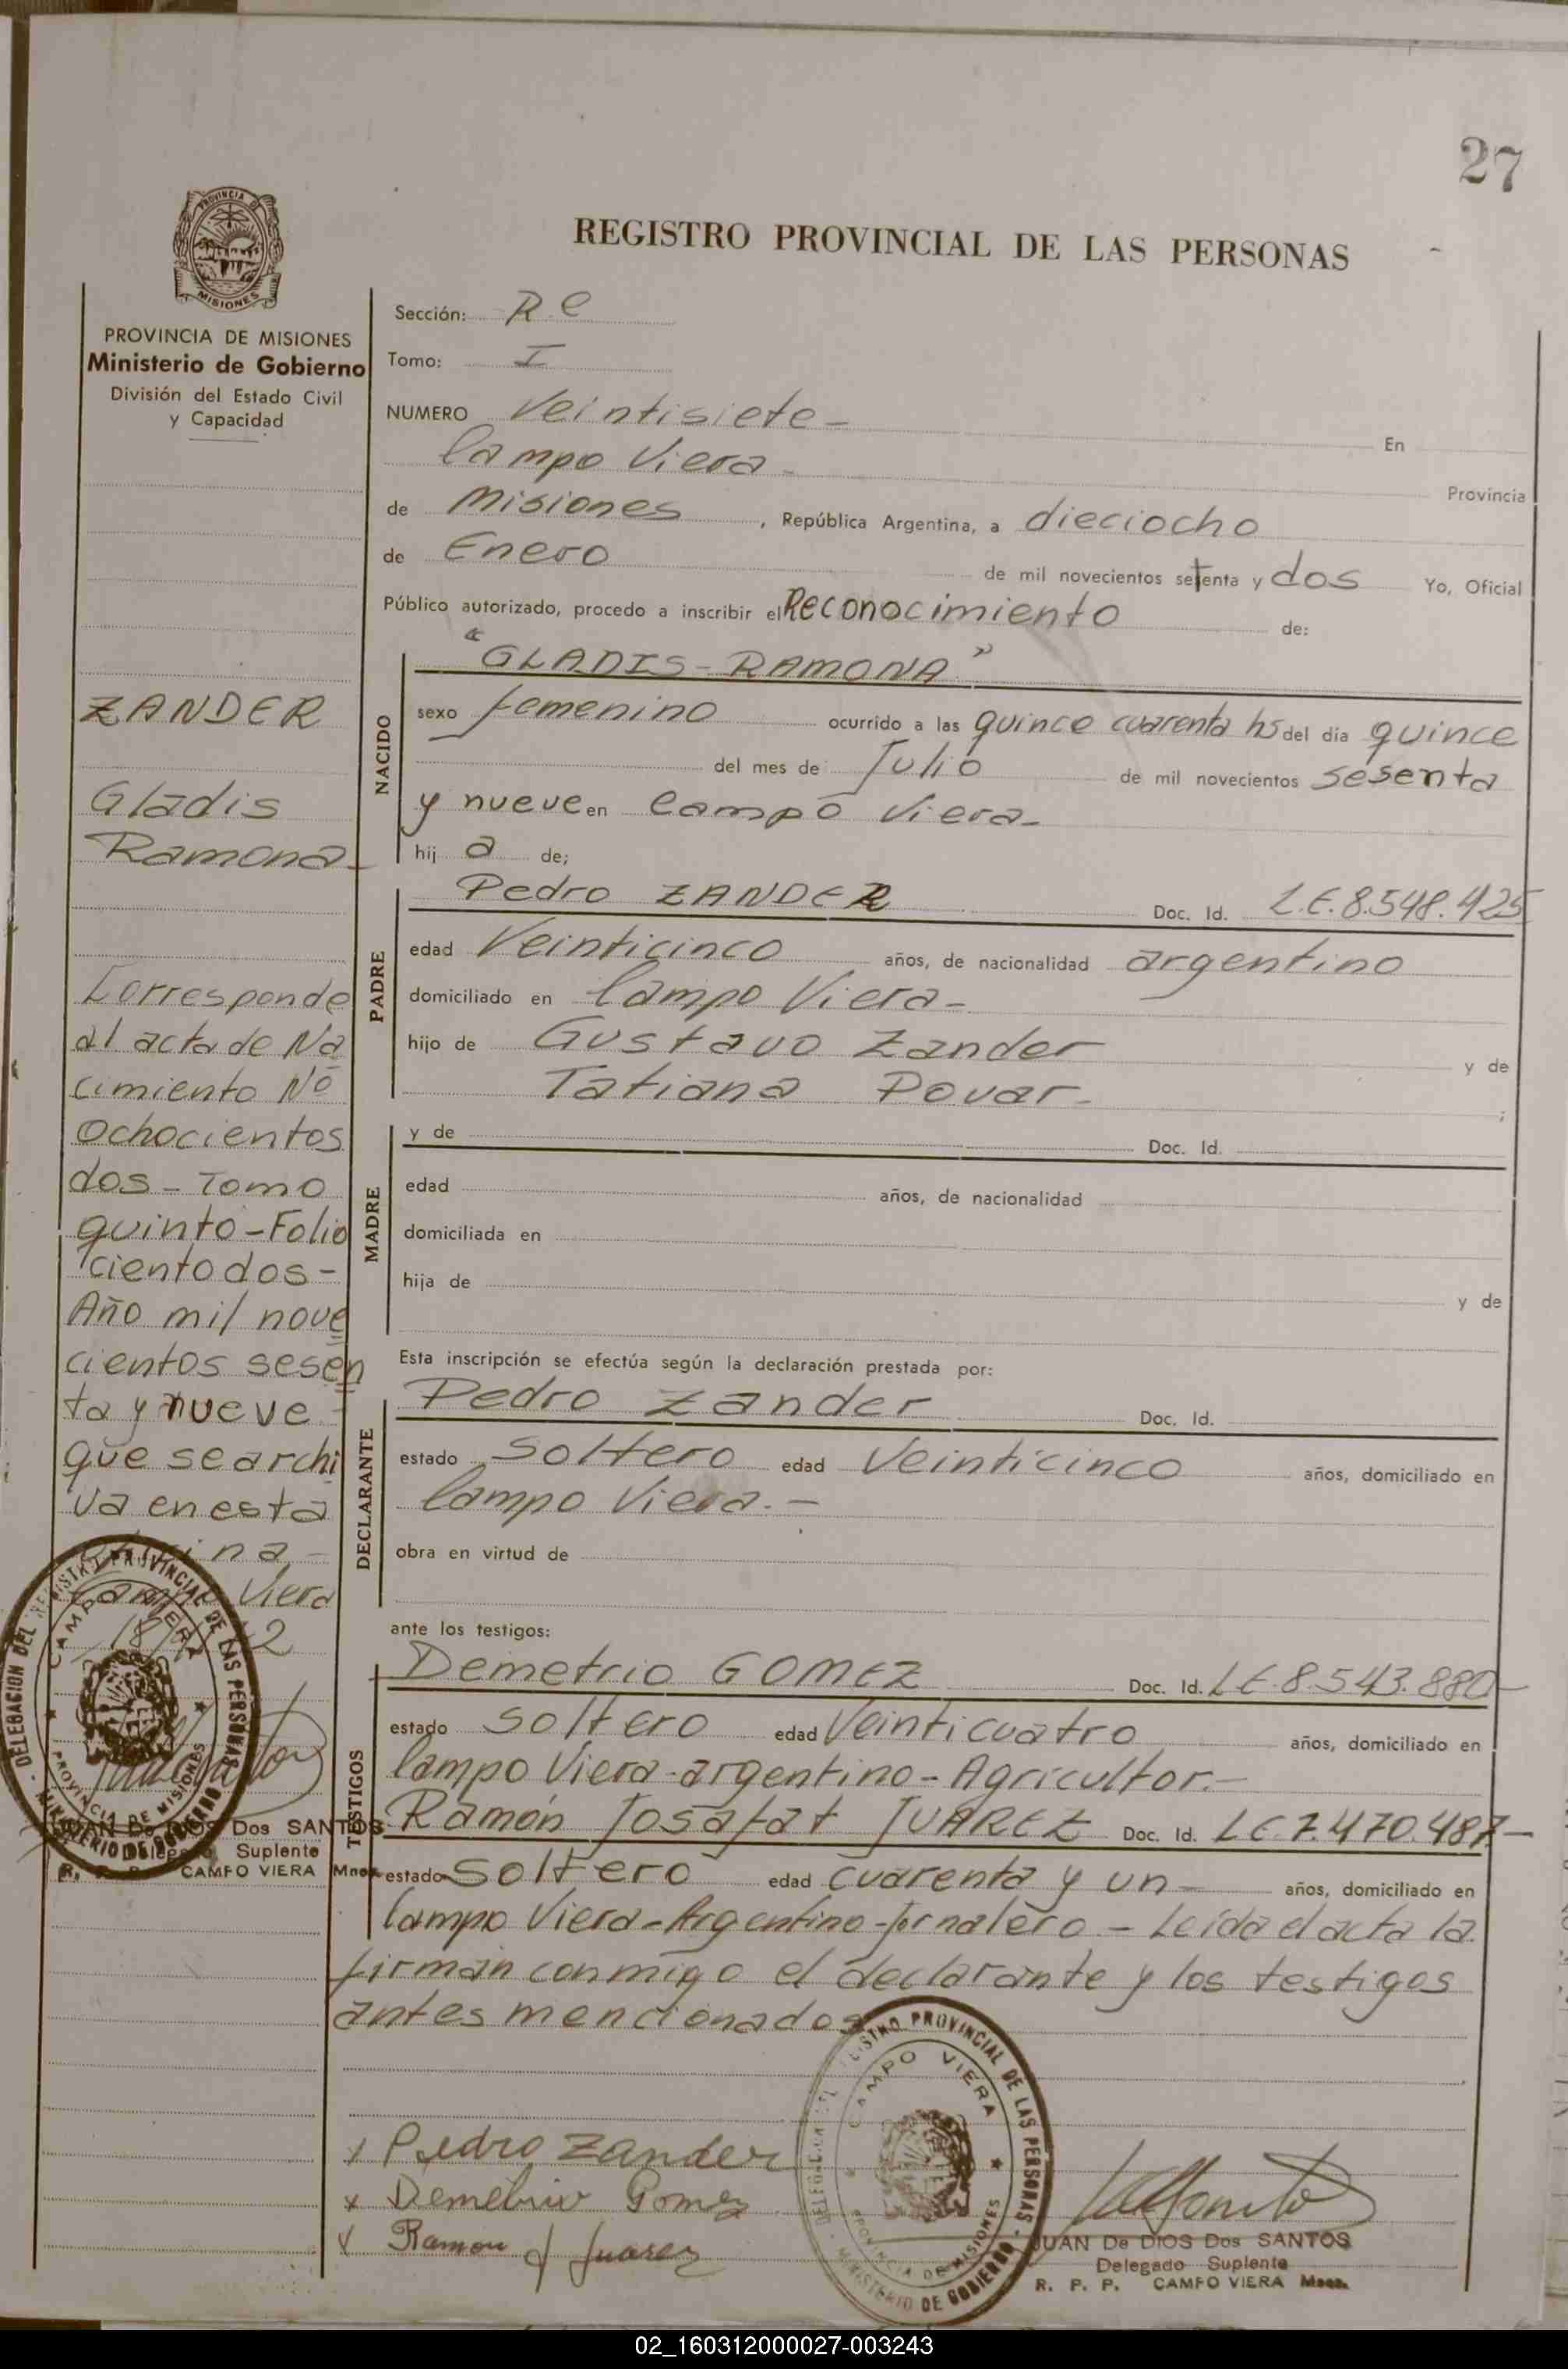 27
PROVINCIA DE
MISIONES
REGISTRO PROVINCIAL DE LAS PERSONAS
PROVINCIA DE MISIONES
Ministerio de Gobierno
División del Estado Civil
y Capacidad
Sección: R.C
Tomo: I
NUMERO Veintisiete - En
Campo Viera - Provincia
de Misiones, República Argentina, a dieciocho
de Enero de mil novecientos setenta y dos Yo, Oficial
Público autorizado, procedo a inscribir el Reconocimiento de:
NACIDO
"GLADIS-RAMONA"
sexo femenino ocurrido a las quince cuarenta hs del día quince
del mes de Julio de mil novecientos sesenta
y nueve en Campo Viera-
hij a de;
PADRE
Pedro ZANDER Doc. Id. L.E.8.548.425
edad Veinticinco años, de nacionalidad argentino
domiciliado en Campo Viera-
hijo de Gustavo Zander y de
Tatiana Povar- ;
MADRE
y de Doc. Id.
edad años, de nacionalidad
domiciliada en
hija de y de
Esta inscripción se efectúa según la declaración prestada por:
DECLARANTE
Pedro Zander Doc. Id.
estado Soltero edad Veinticinco años, domiciliado en
Campo Viera.-
obra en virtud de
ante los testigos:
TESTIGOS
Demetrio GOMEZ Doc. Id. LE.8.543.880-
estado soltero edad Veinticuatro años, domiciliado en
Campo Viera-argentino-Agricultor.-
Ramón Josafat JUAREZ Doc. Id. LE.7.470.487-
estado soltero edad cuarenta y un- años, domiciliado en
Campo Viera-Argentino-Jornalero-Leída el acta la
firman conmigo el declarante y los testigos
antes mencionados
ZANDER
Gladis
Ramona-
Corresponde
al acta de Na
cimiento Nº
Ochocientos
dos-Tomo
quinto-Folio
ciento dos-
Año mil nove
cientos sesen
ta y nueve-
que se archi
va en esta
Oficina-
Campo Viera
DELEGACION DEL REGISTRO PROVINCIAL DE LAS PERSONAS
CAMPO VIERA
PROVINCIA DE MISIONES
MINISTERIO DE GOBIERNO
JUAN De DIOS Dos SANTOS
Delegado Suplente
R. P. P. CAMPO VIERA Mnes.
x Pedro Zander
x Demetrio Gomez
x Ramon J Juarez
DELEGACION DEL REGISTRO PROVINCIAL DE LAS PERSONAS
CAMPO VIERA
PROVINCIA DE MISIONES
MINISTERIO DE GOBIERNO
JUAN De DIOS Dos SANTOS
Delegado Suplente
R. P. P. CAMPO VIERA Mnes.
02_160312000027-003243